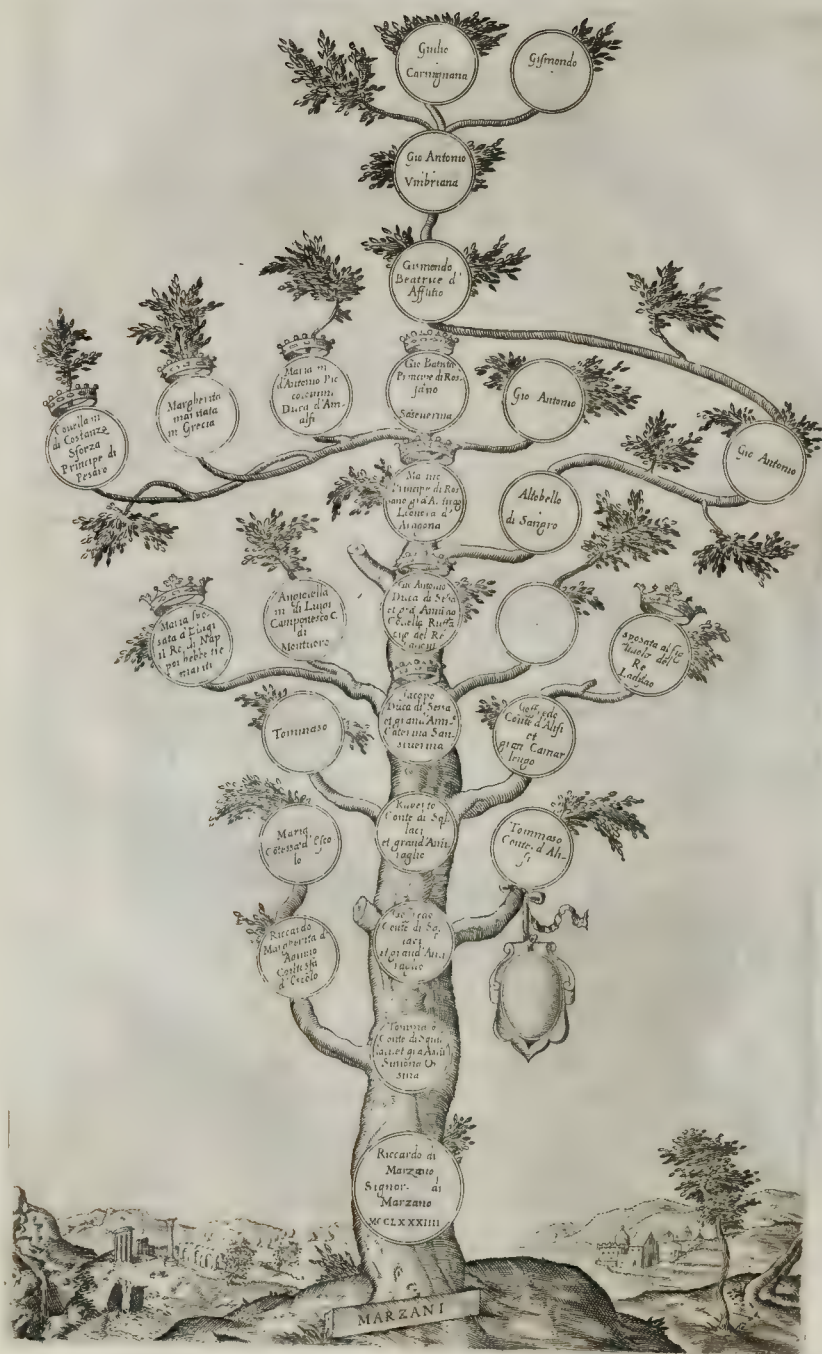 Giulio
Carmignana
Gismondo
Gio Antonio
Vmbriana
Gismondo
Beatrice d'
Afflitto
Couella m
di Costanzo
Sforza
Principe di
Pesaro
Margherita
maritata
in Grecia
Maria m
d'Antonio Pic
colomini
Duca d'Am-
alfi
Gio Batista
Principe di Ros-
sano
Sanseuerina
Gio Antonio
Gio Antonio
Principe di Ros
Leonora d'
Aragona
Altobello
di Sangro
Maria spo-
sata d'Luigi
il Re di Nap
poi hebbe tre
mariti
m di Luigi
Camponesco C.
di
Montuoro
Gio Antonio
Duca di Sessa
Couella Ruffa
del Re
sposata al fig
del
Re
Ladislao
Tommaso
Jacopo
Duca di Sessa
et grand'Am.
Caterina San-
seuerina
Goffredo
Conte d'Alifi
et
gran Camar
lengo
Maria
Cōtessa d'
Ruberto
Conte di Sqi
laci
et grand'Ami
raglio
Tommaso
Conte d'Ali-
fi
Riccardo
Margherita d'
Aquino
Contessa
Conte di Sq
laci
et grand'Am
raglio
Tommaso
Conte di Squi
laci et grā
Simona
Riccardo di
Marzano
Signor di
Marzano
MCCLXXXIIII
MARZANI